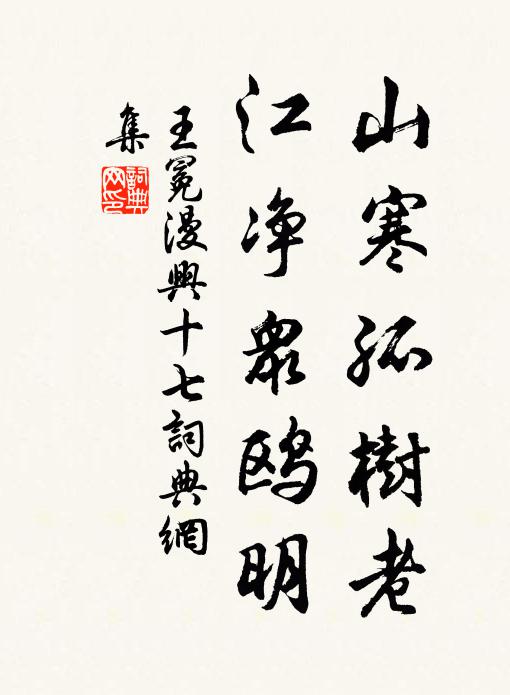 山寒孤樹老
江净衆鸥明
王冕漫興十七詞典網
集
詞典
网印